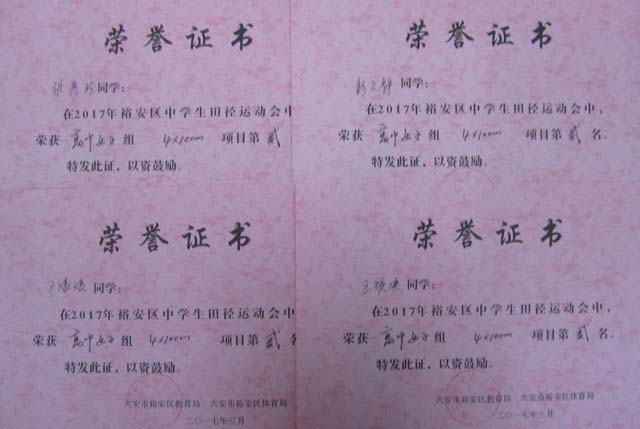 荣誉证书
同学:
在2017年裕安区中学生田径运动会中
荣获 高中女子 组 4×100m 项目第 贰
特发此证,以资鼓励。
荣誉证书
同学:
在2017年裕安区中学生田径运动会中,
荣获 高中女子 组 4×100m 项目第 贰 名。
特发此证,以资鼓励。
荣誉证书
同学:
在2017年裕安区中学生田径运动会中
荣获 高中女子 组 4×100m 项目第 贰 名
特发此证,以资鼓励。
六安市裕安区教育局 六安市裕安区体育局
二〇一七年三月
荣誉证书
王 同学:
在2017年裕安区中学生田径运动会中,
荣获 高中女子 组 4×100m 项目第 贰 名。
特发此证,以资鼓励。
六安市裕安区教育局 六安市裕安区体育局
二〇一七年三月